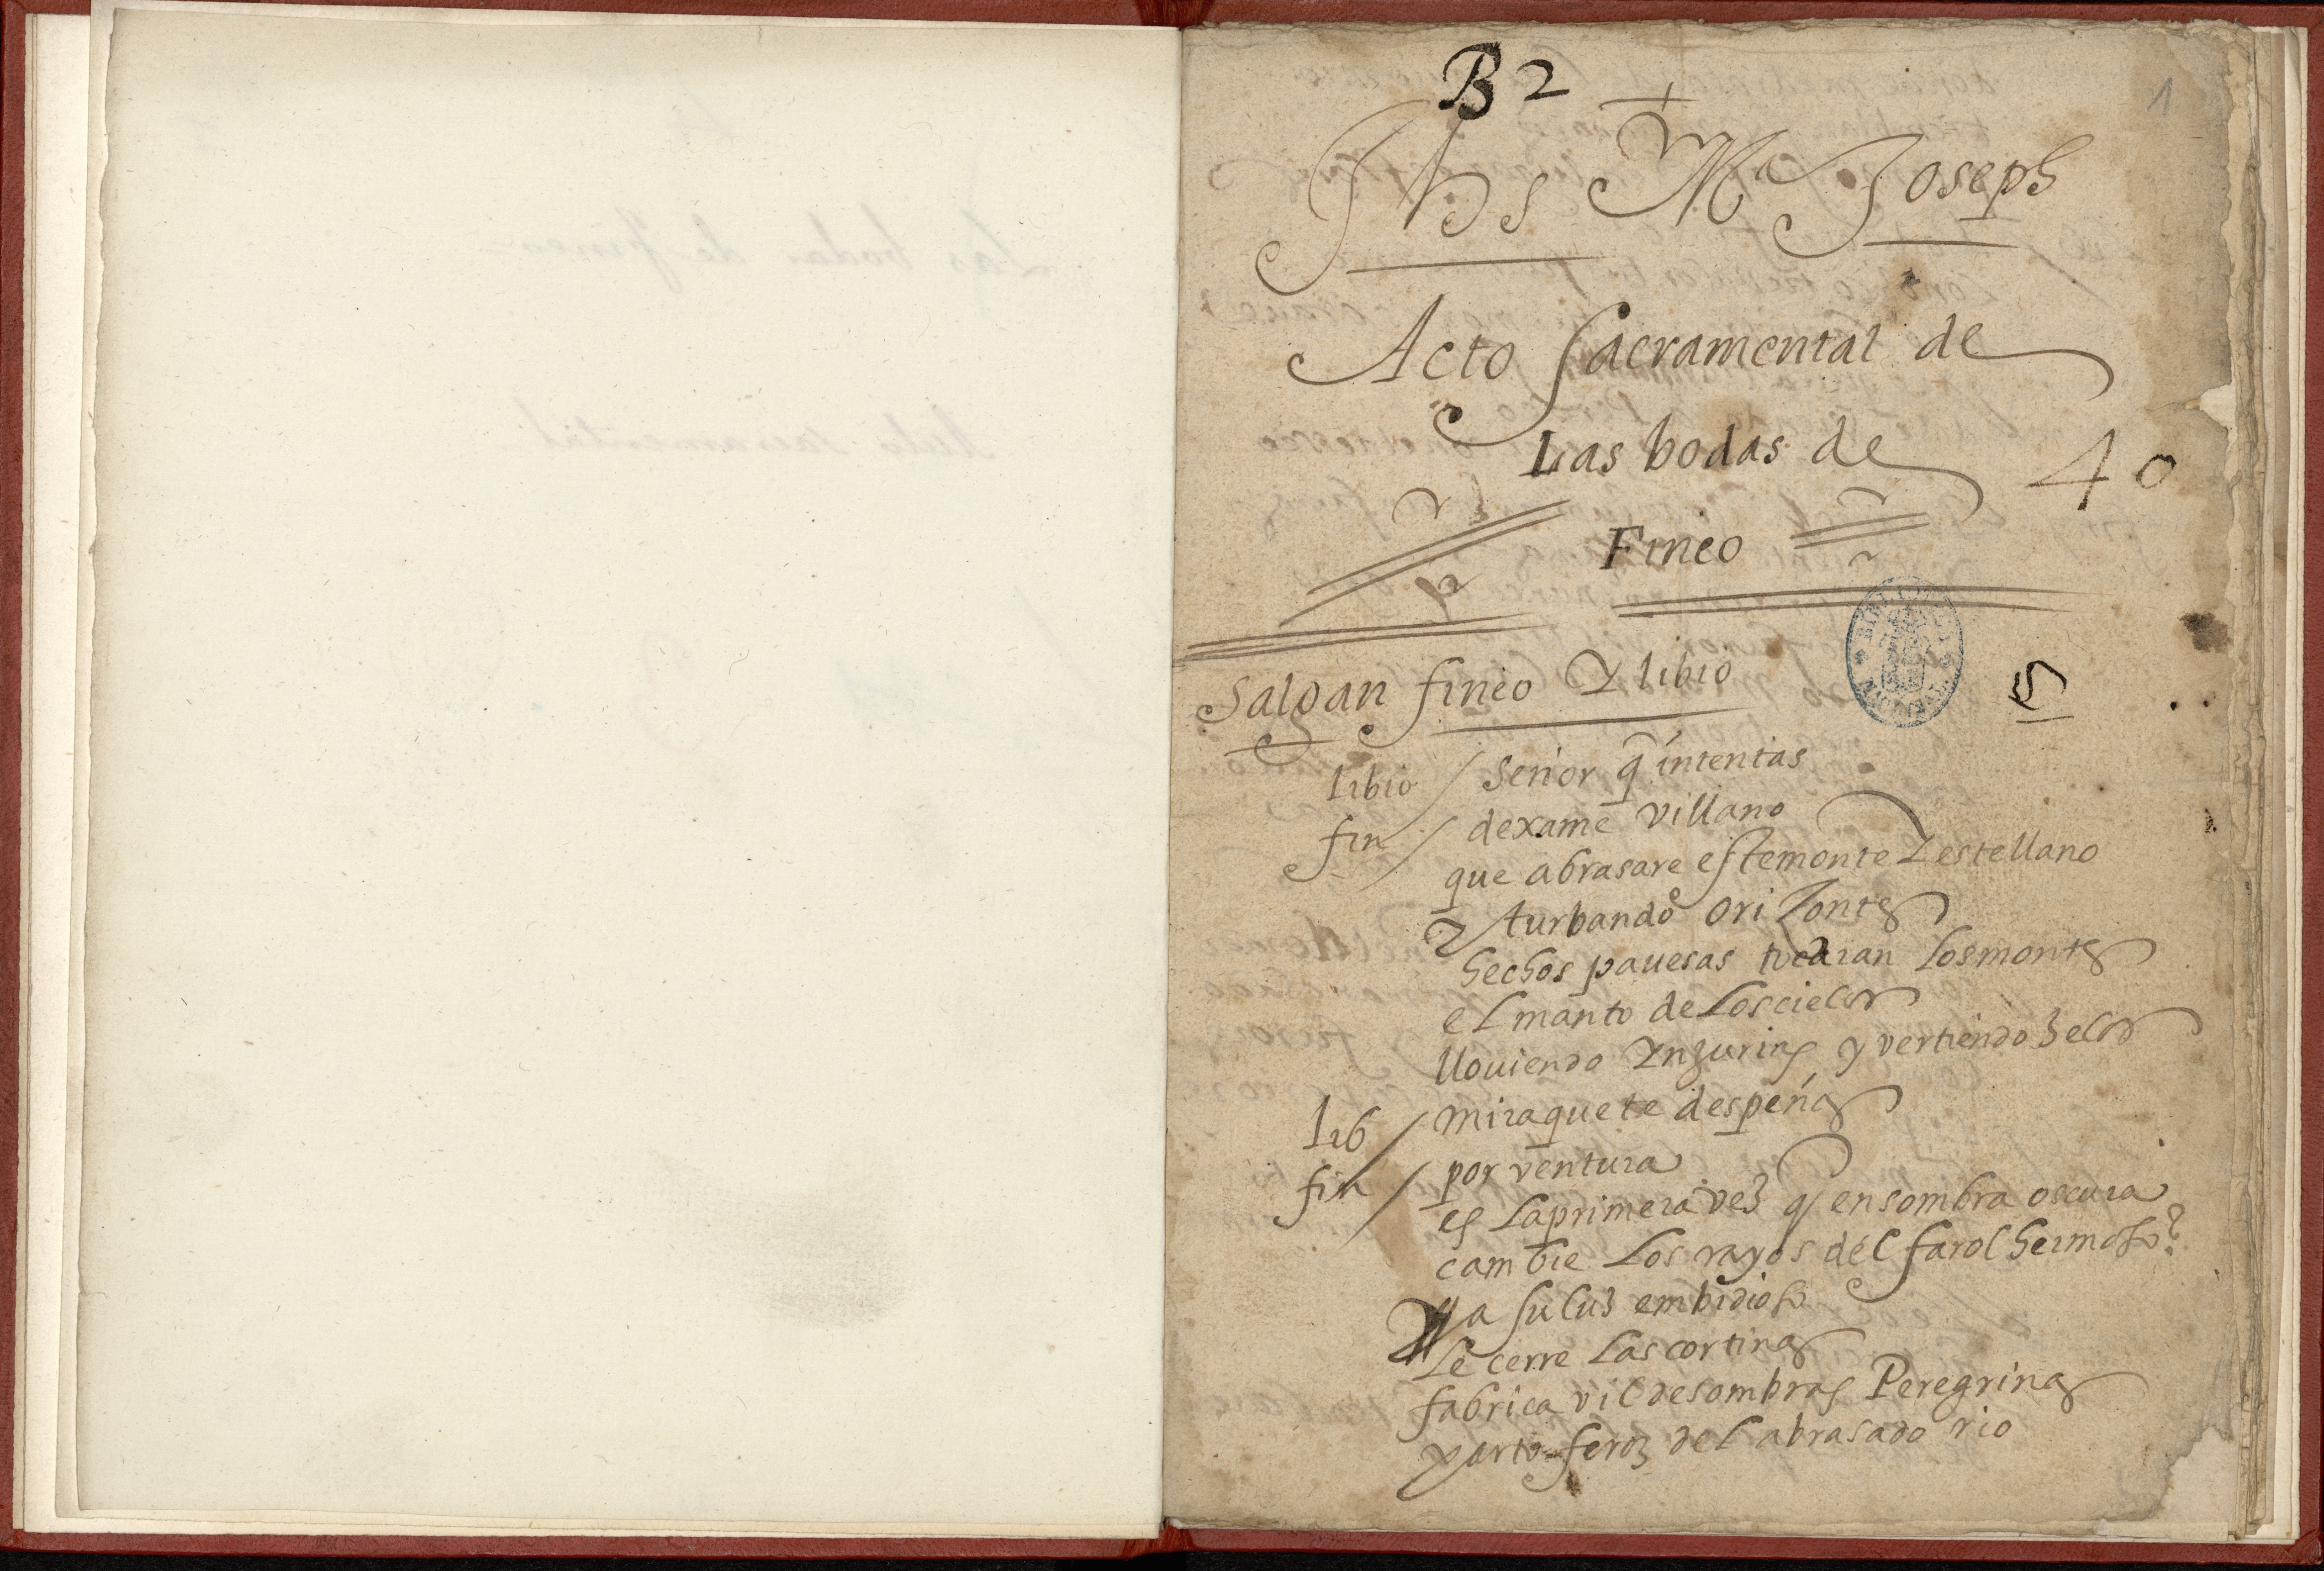 B 2
1
Jhs Mª Joseph
Acto sacramental de
Las bodas de
40
Fineo
Salgan fineo Y libio
5
libio / Señor q̃ intentas
fin / dexame villano
que abrasare este monte Y estellano
Y turbando oriZontes
hechos pauesas tocaran los montes
el manto de los cielos
llouiendo Ynjurias y vertiendo Zelos
lib / mira que te despeñas
fin / por ventura
es la primera vez q en sombra oscura
cambie los rayos del farol hermoso?
Ya su luz embidioso
le cerre las cortinas
fabrica vil de sombras Peregrinas
parto feroz del abrasado rio